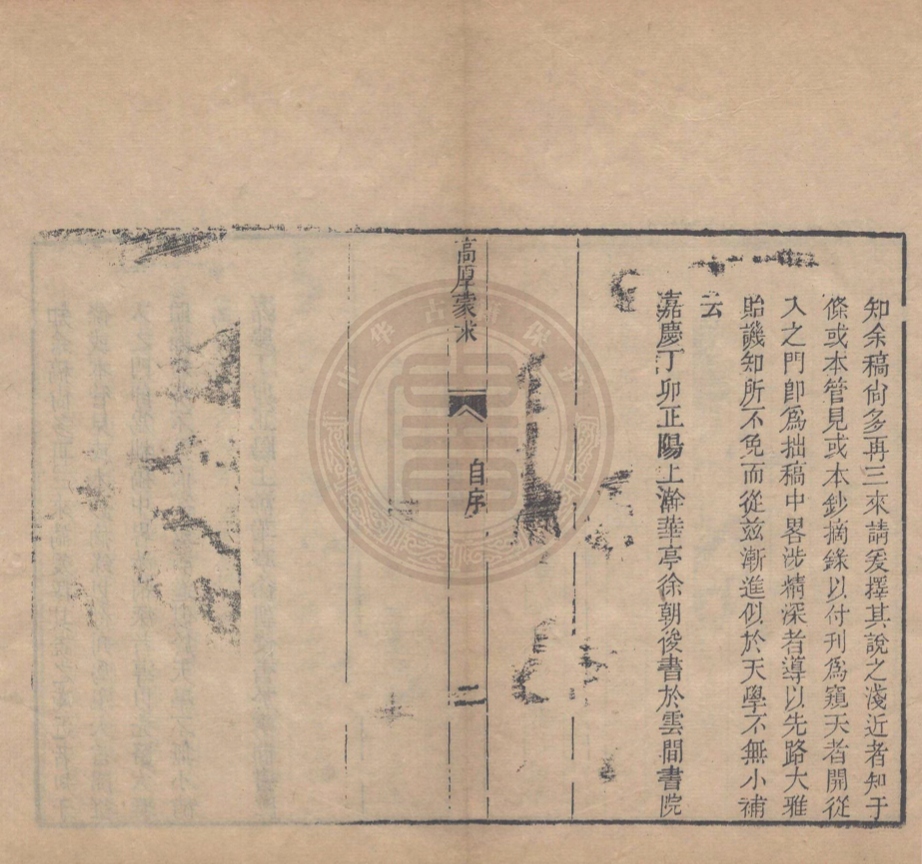 知余稿尙多再三來請爰擇其說之淺近者知于
條或本管見或本鈔摘錄以付刊爲窺天者開從
入之門卽爲拙稿中畧涉精深者導以先路大雅
貽譏知所不免而從玆漸進似於天學不無小補
云
嘉慶丁卯正陽上澣華亭徐朝俊書於雲間書院
高厚蒙求
自序
二